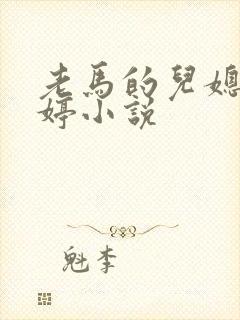 老馬的兒媳
婷小說
魁李